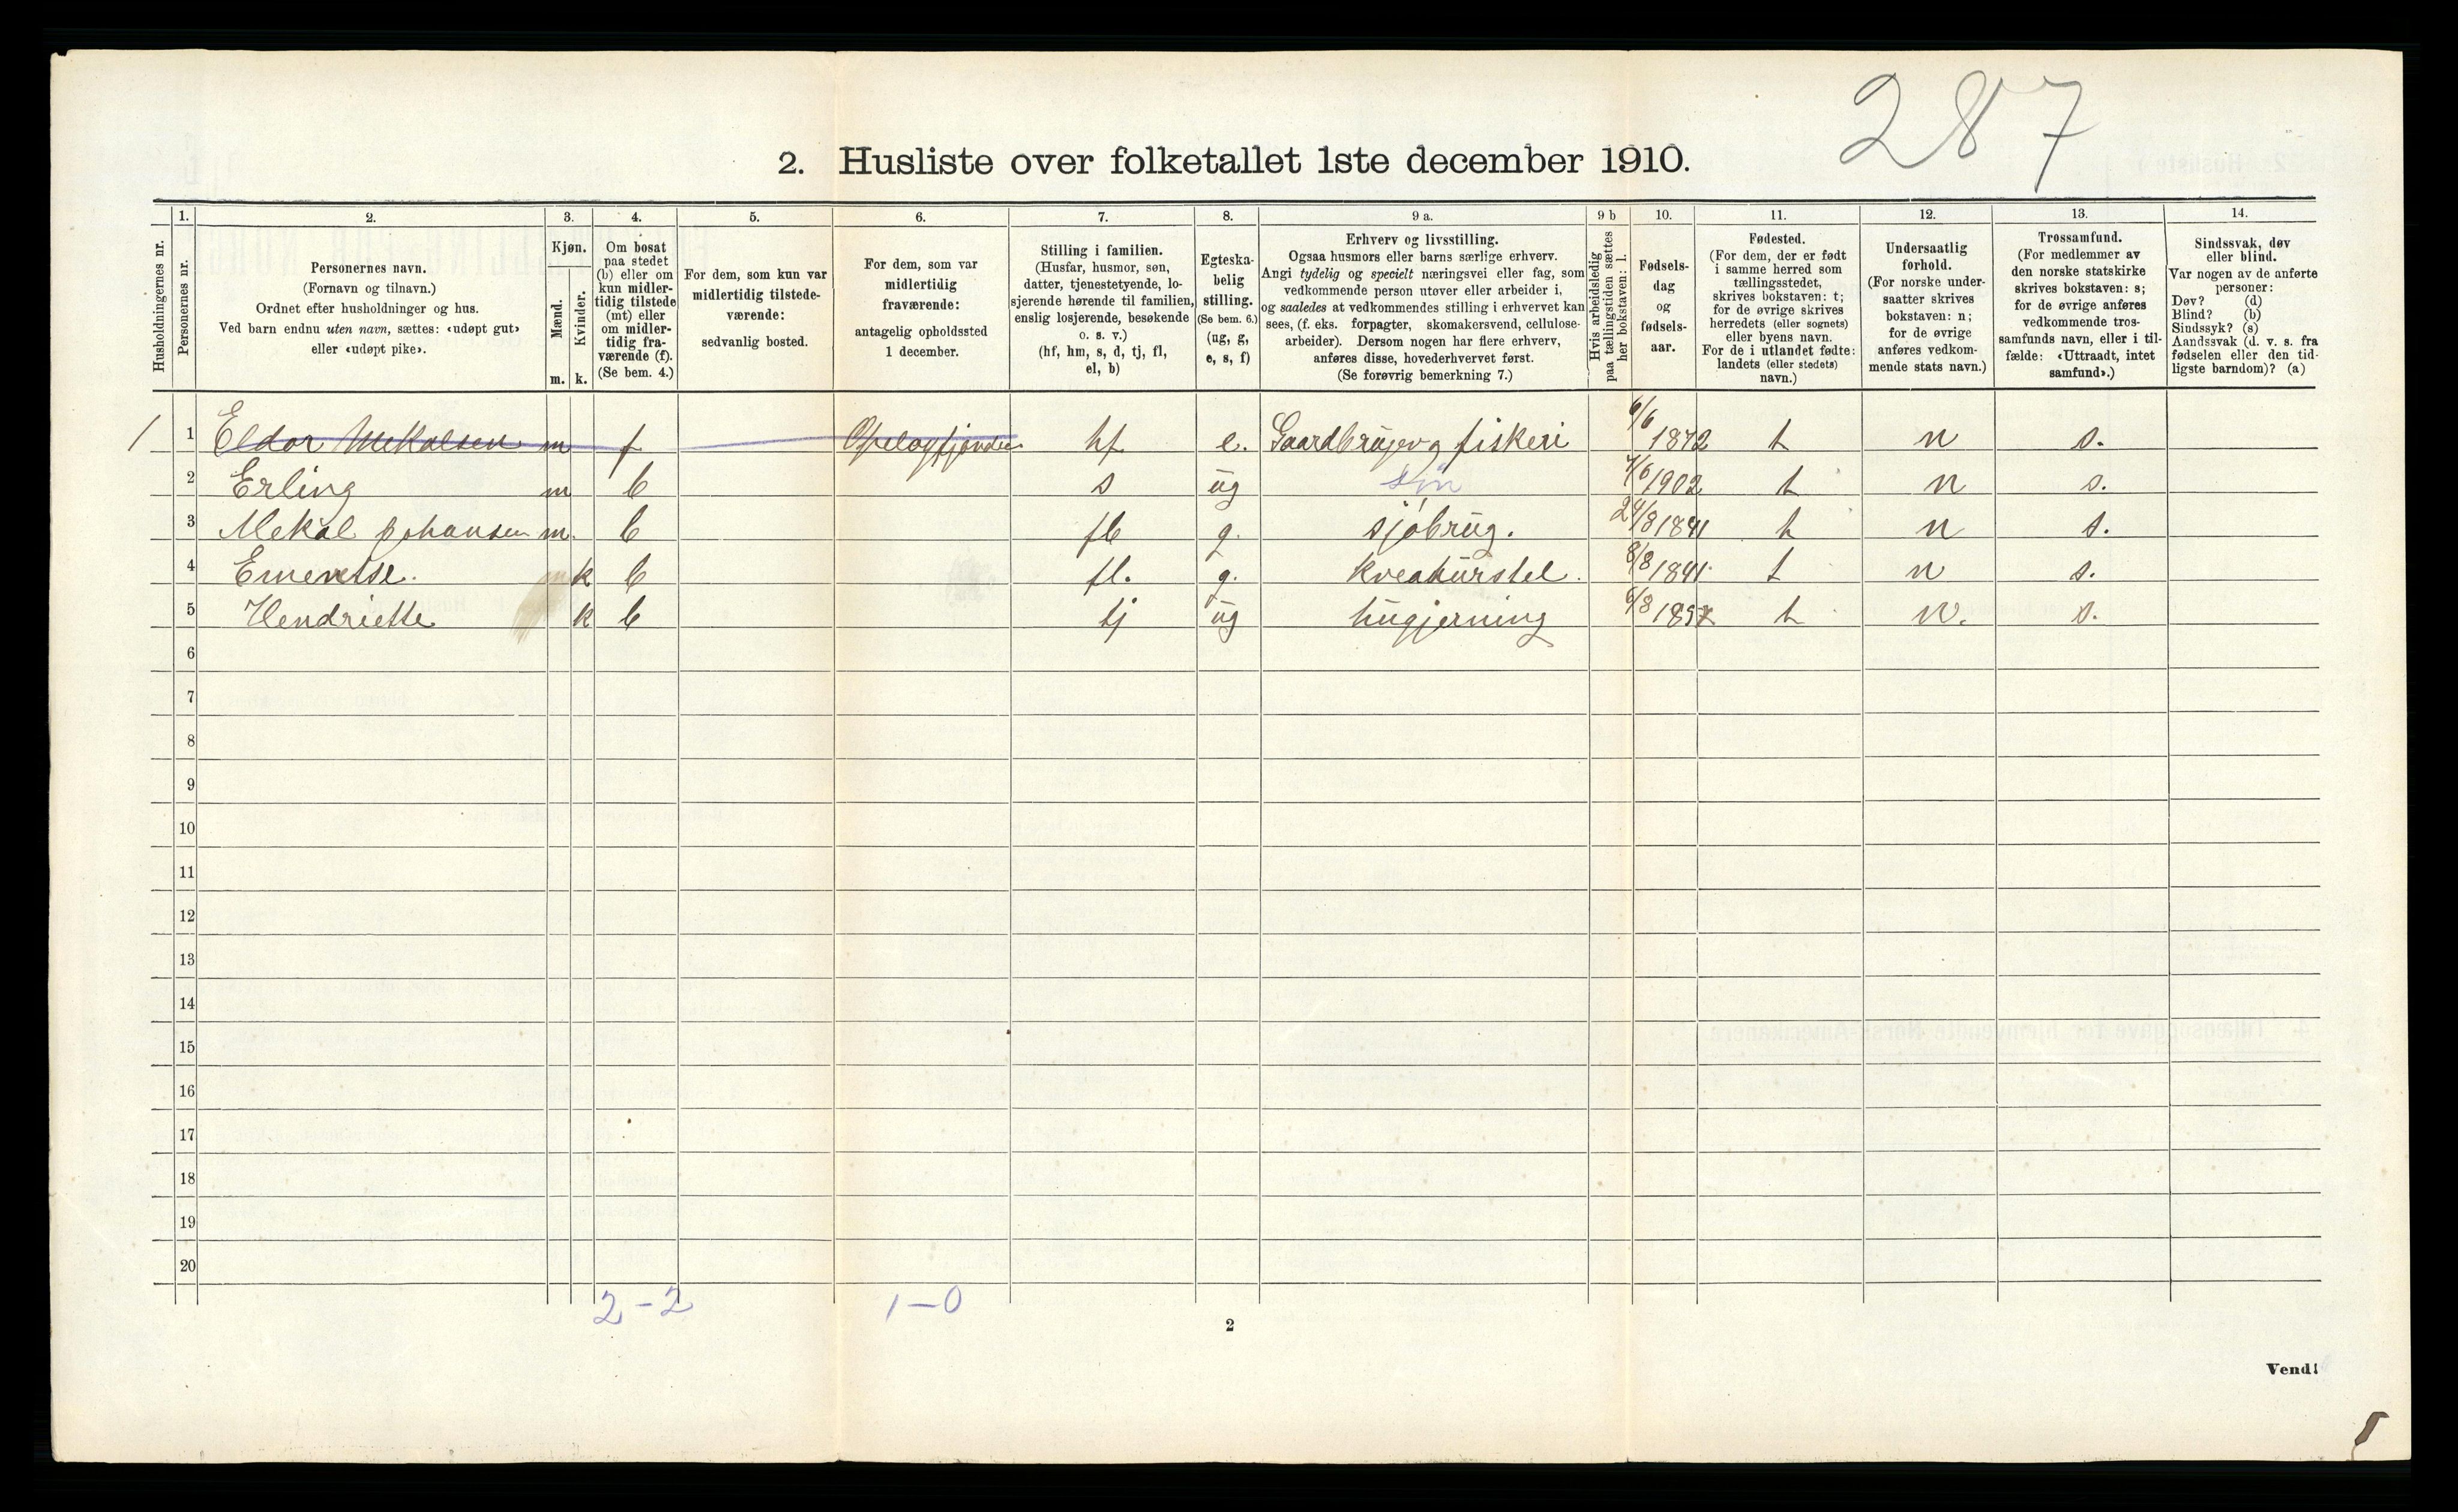 287
2. Husliste over folketallet 1ste december 1910.
Husholdningernes nr.
1.
Personernes nr.
2.
Personernes navn.
(Fornavn og tilnavn.)
Ordnet efter husholdninger og hus.
Ved barn endnu uten navn, sættes: «udøpt gut»
eller «udøpt pike».
3.
Kjøn.
Mænd.
Kvinder.
m. k.
4.
Om bosat
paa stedet
(b) eller om
kun midler-
tidig tilstede
(mt) eller
om midler-
tidig fra-
værende (f).
(Se bem. 4.)
5.
For dem, som kun var
midlertidig tilstede-
værende:
sedvanlig bosted.
6.
For dem, som var
midlertidig
fraværende:
antagelig opholdssted
1 december.
7.
Stilling i familien.
(Husfar, husmor, søn,
datter, tjenestetyende, lo-
sjerende hørende til familien,
enslig losjerende, besøkende
o. s. v.)
(hf, hm, s, d, tj, fl,
el, b)
8.
Egteska-
belig
stilling.
(Se bem. 6.)
(ug, g,
e, s, f)
9 a.
Erhverv og livsstilling.
Ogsaa husmors eller barns særlige erhverv.
Angi tydelig og specielt næringsvei eller fag, som
vedkommende person utøver eller arbeider i,
og saaledes at vedkommendes stilling i erhvervet kan
sees, (f. eks. forpagter, skomakersvend, cellulose-
arbeider). Dersom nogen har flere erhverv,
anføres disse, hovederhvervet først.
(Se forøvrig bemerkning 7.)
9 b
Hvis arbeidsledig
paa tællingstiden sættes
her bokstaven: l.
10.
Fødsels-
dag
og
fødsels-
aar.
11.
Fødested.
(For dem, der er født
i samme herred som
tællingsstedet,
skrives bokstaven: t;
for de øvrige skrives
herredets (eller sognets)
eller byens navn.
For de i utlandet fødte:
landets (eller stedets)
navn.)
12.
Undersaatlig
forhold.
(For norske under-
saatter skrives
bokstaven: n;
for de øvrige
anføres vedkom-
mende stats navn.)
13.
Trossamfund.
(For medlemmer av
den norske statskirke
skrives bokstaven: s;
for de øvrige anføres
vedkommende tros-
samfunds navn, eller i til-
fælde: «Uttraadt, intet
samfund».)
14.
Sindssvak, døv
eller blind.
Var nogen av de anførte
personer:
Døv? (d)
Blind? (b)
Sindssyk? (s)
Aandssvak (d. v. s. fra
fødselen eller den tid-
ligste barndom)? (a)
1 1 Eldor Mekalsen m f hf e. Gaardbruger og fiskeri 6/6 1872 t n s.
2 Erling m b s ug søn 1902 t n s.
3 Mekal Johansen m. b g. sjøbrug. 24/8 1841 t n s.
4 k b fl. g. 8/8 1841 t n s.
5 Hendriette k b tj ug hugjerning 6/8 t n. s.
6
7
8
9
10
11
12
13
14
15
16
17
18
19
20
2-2 1-0
2
Vend!